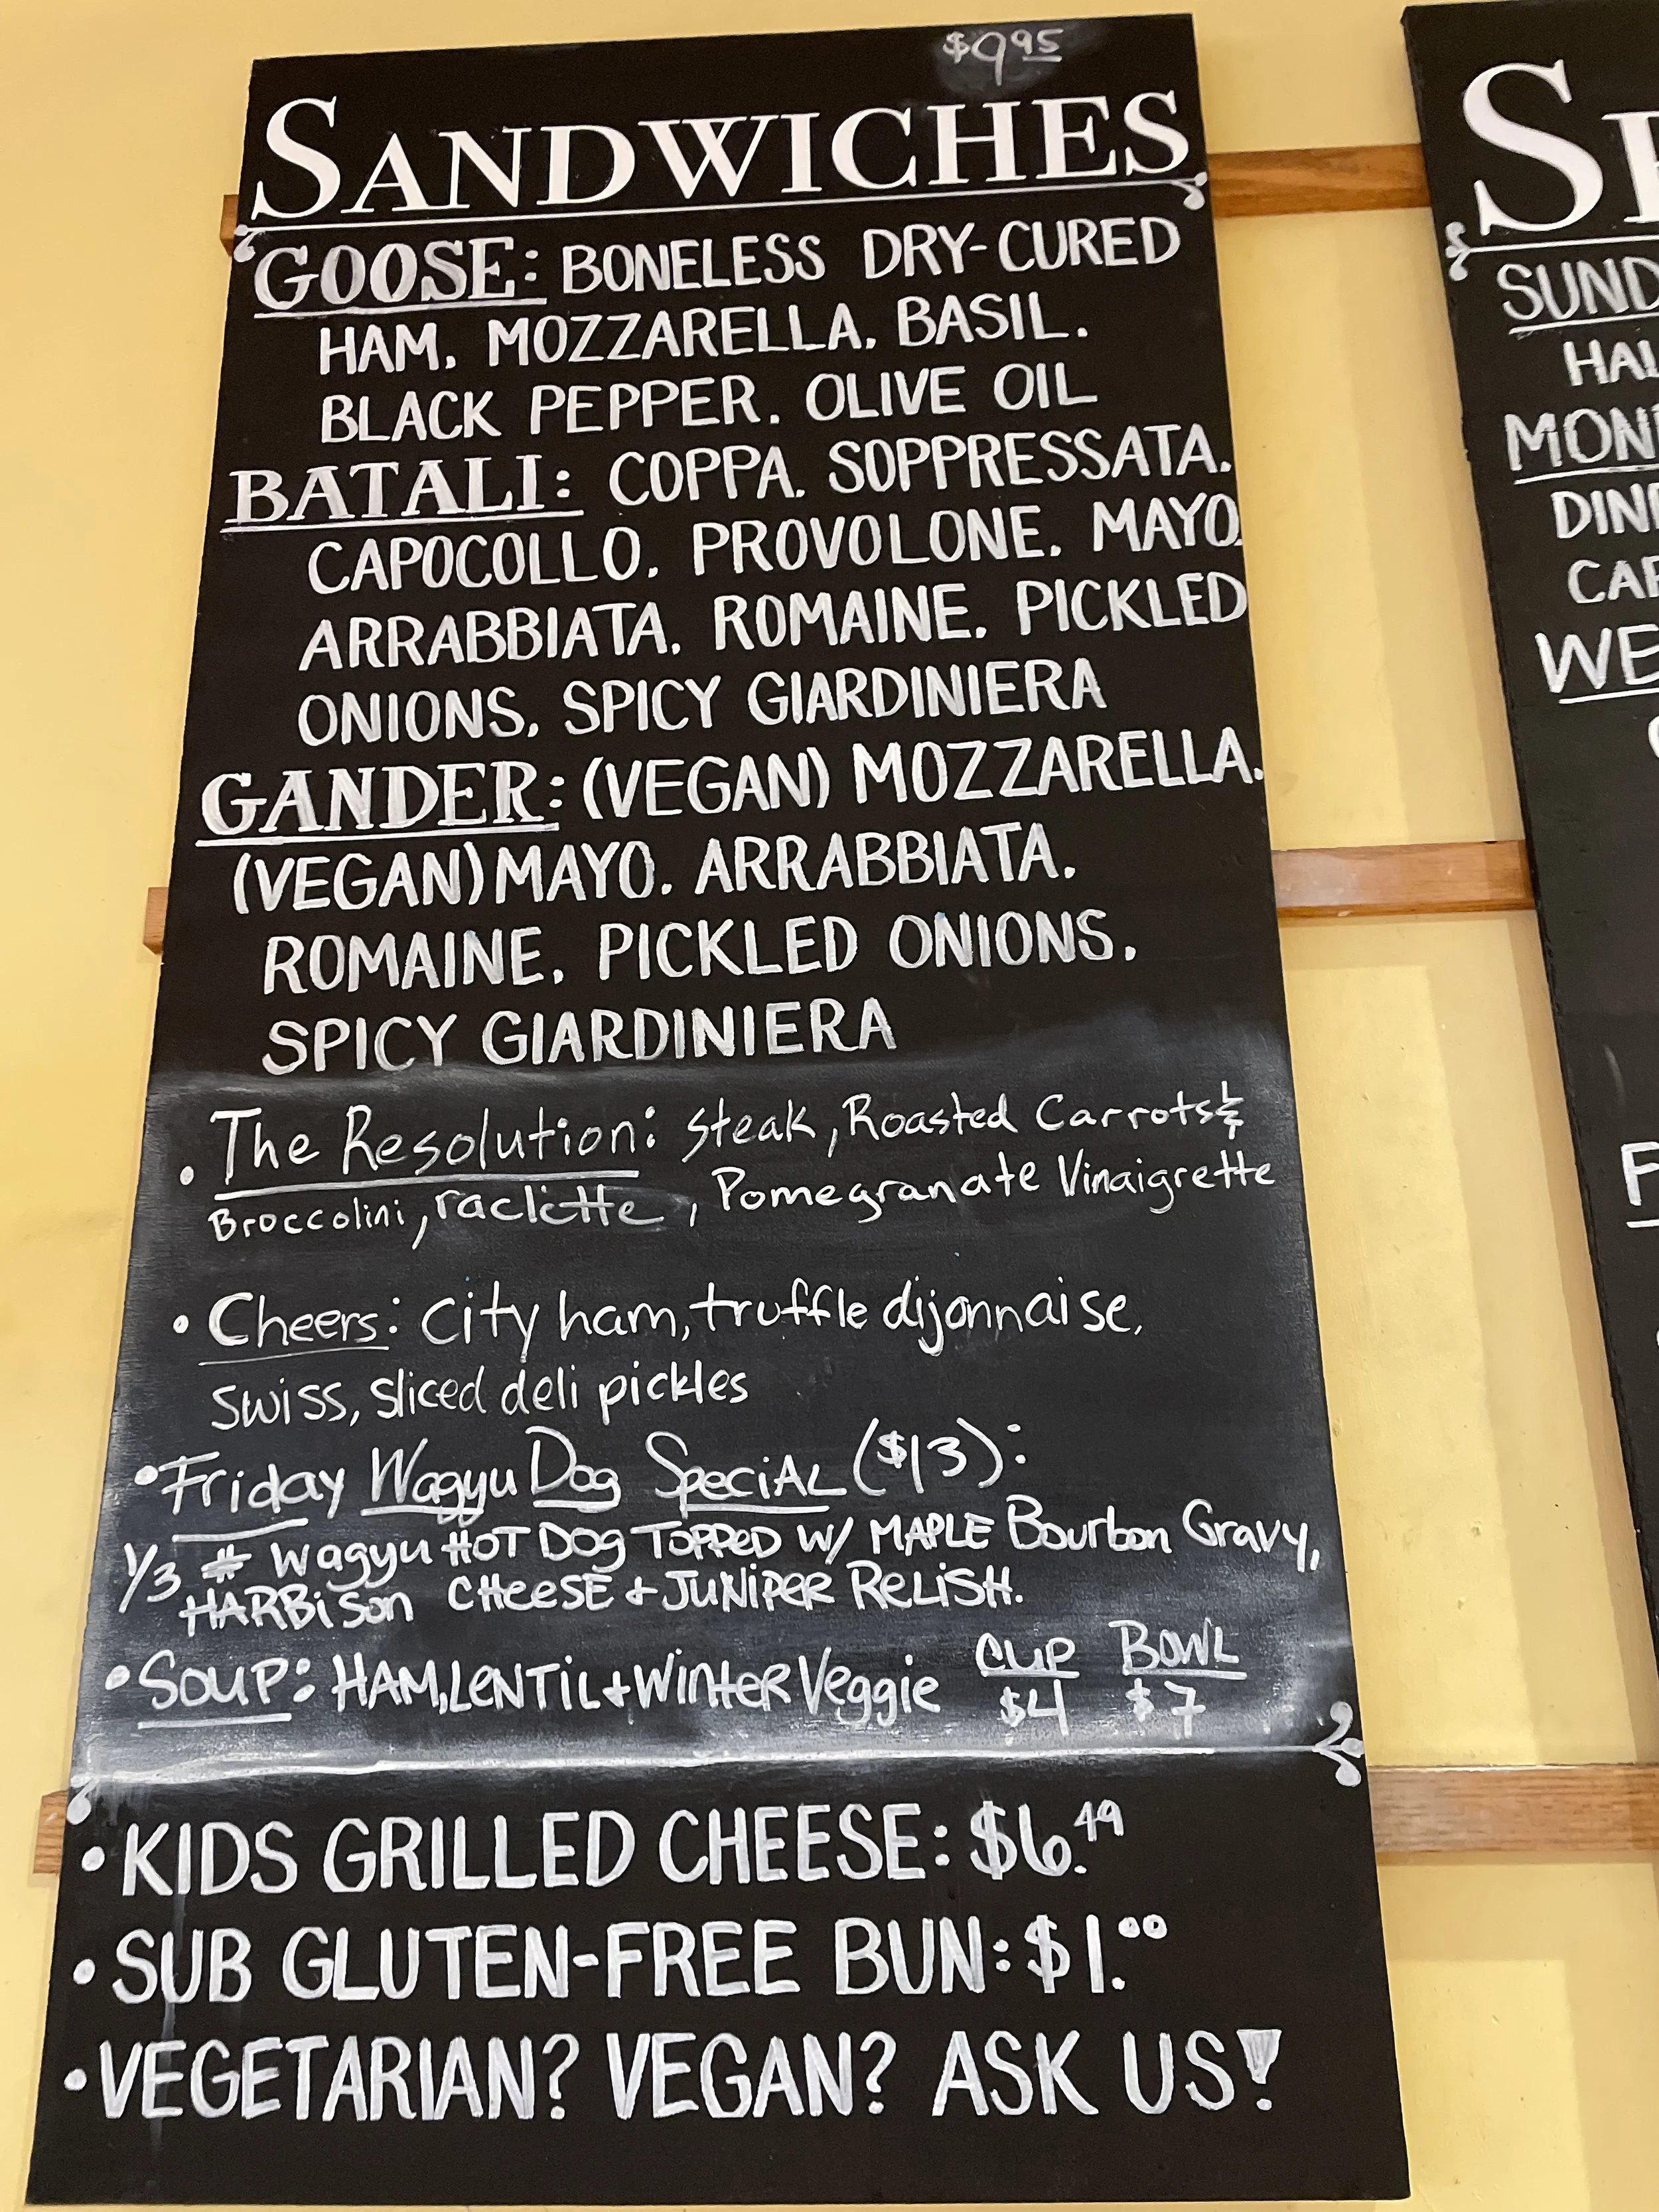 $9.95
SANDWICHES
GOOSE: BONELESS DRY-CURED
HAM. MOZZARELLA. BASIL.
BLACK PEPPER. OLIVE OIL
BATALI: COPPA. SOPPRESSATA.
CAPOCOLLO. PROVOLONE. MAYO.
ARRABBIATA. ROMAINE. PICKLED
ONIONS. SPICY GIARDINIERA
GANDER: (VEGAN) MOZZARELLA.
(VEGAN) MAYO. ARRABBIATA.
ROMAINE. PICKLED ONIONS.
SPICY GIARDINIERA
• The Resolution: Steak, Roasted Carrots &
Broccolini, raclette, Pomegranate Vinaigrette
• Cheers: City ham, truffle dijonnaise,
Swiss, sliced deli pickles
• Friday Wagyu Dog SpeciAL ($13):
1/3 # Wagyu HOT DOg TOPPeD W/ MAPLE Bourbon Gravy,
HARBison CHeeSE + JUNiPER ReLiSH.
• SOUP: HAM, LeNTiL + WinteR Veggie CUP BOWL
$4 $7
• KIDS GRILLED CHEESE: $6.49
• SUB GLUTEN-FREE BUN: $1.00
• VEGETARIAN? VEGAN? ASK US!
SUND
HAL
MON
DIN
CAR
WE
F